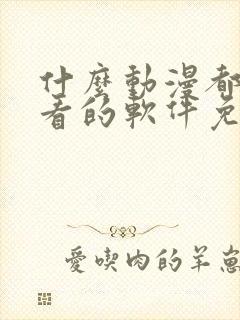 什麼動漫都
看的軟件免
愛喫肉的羊崽